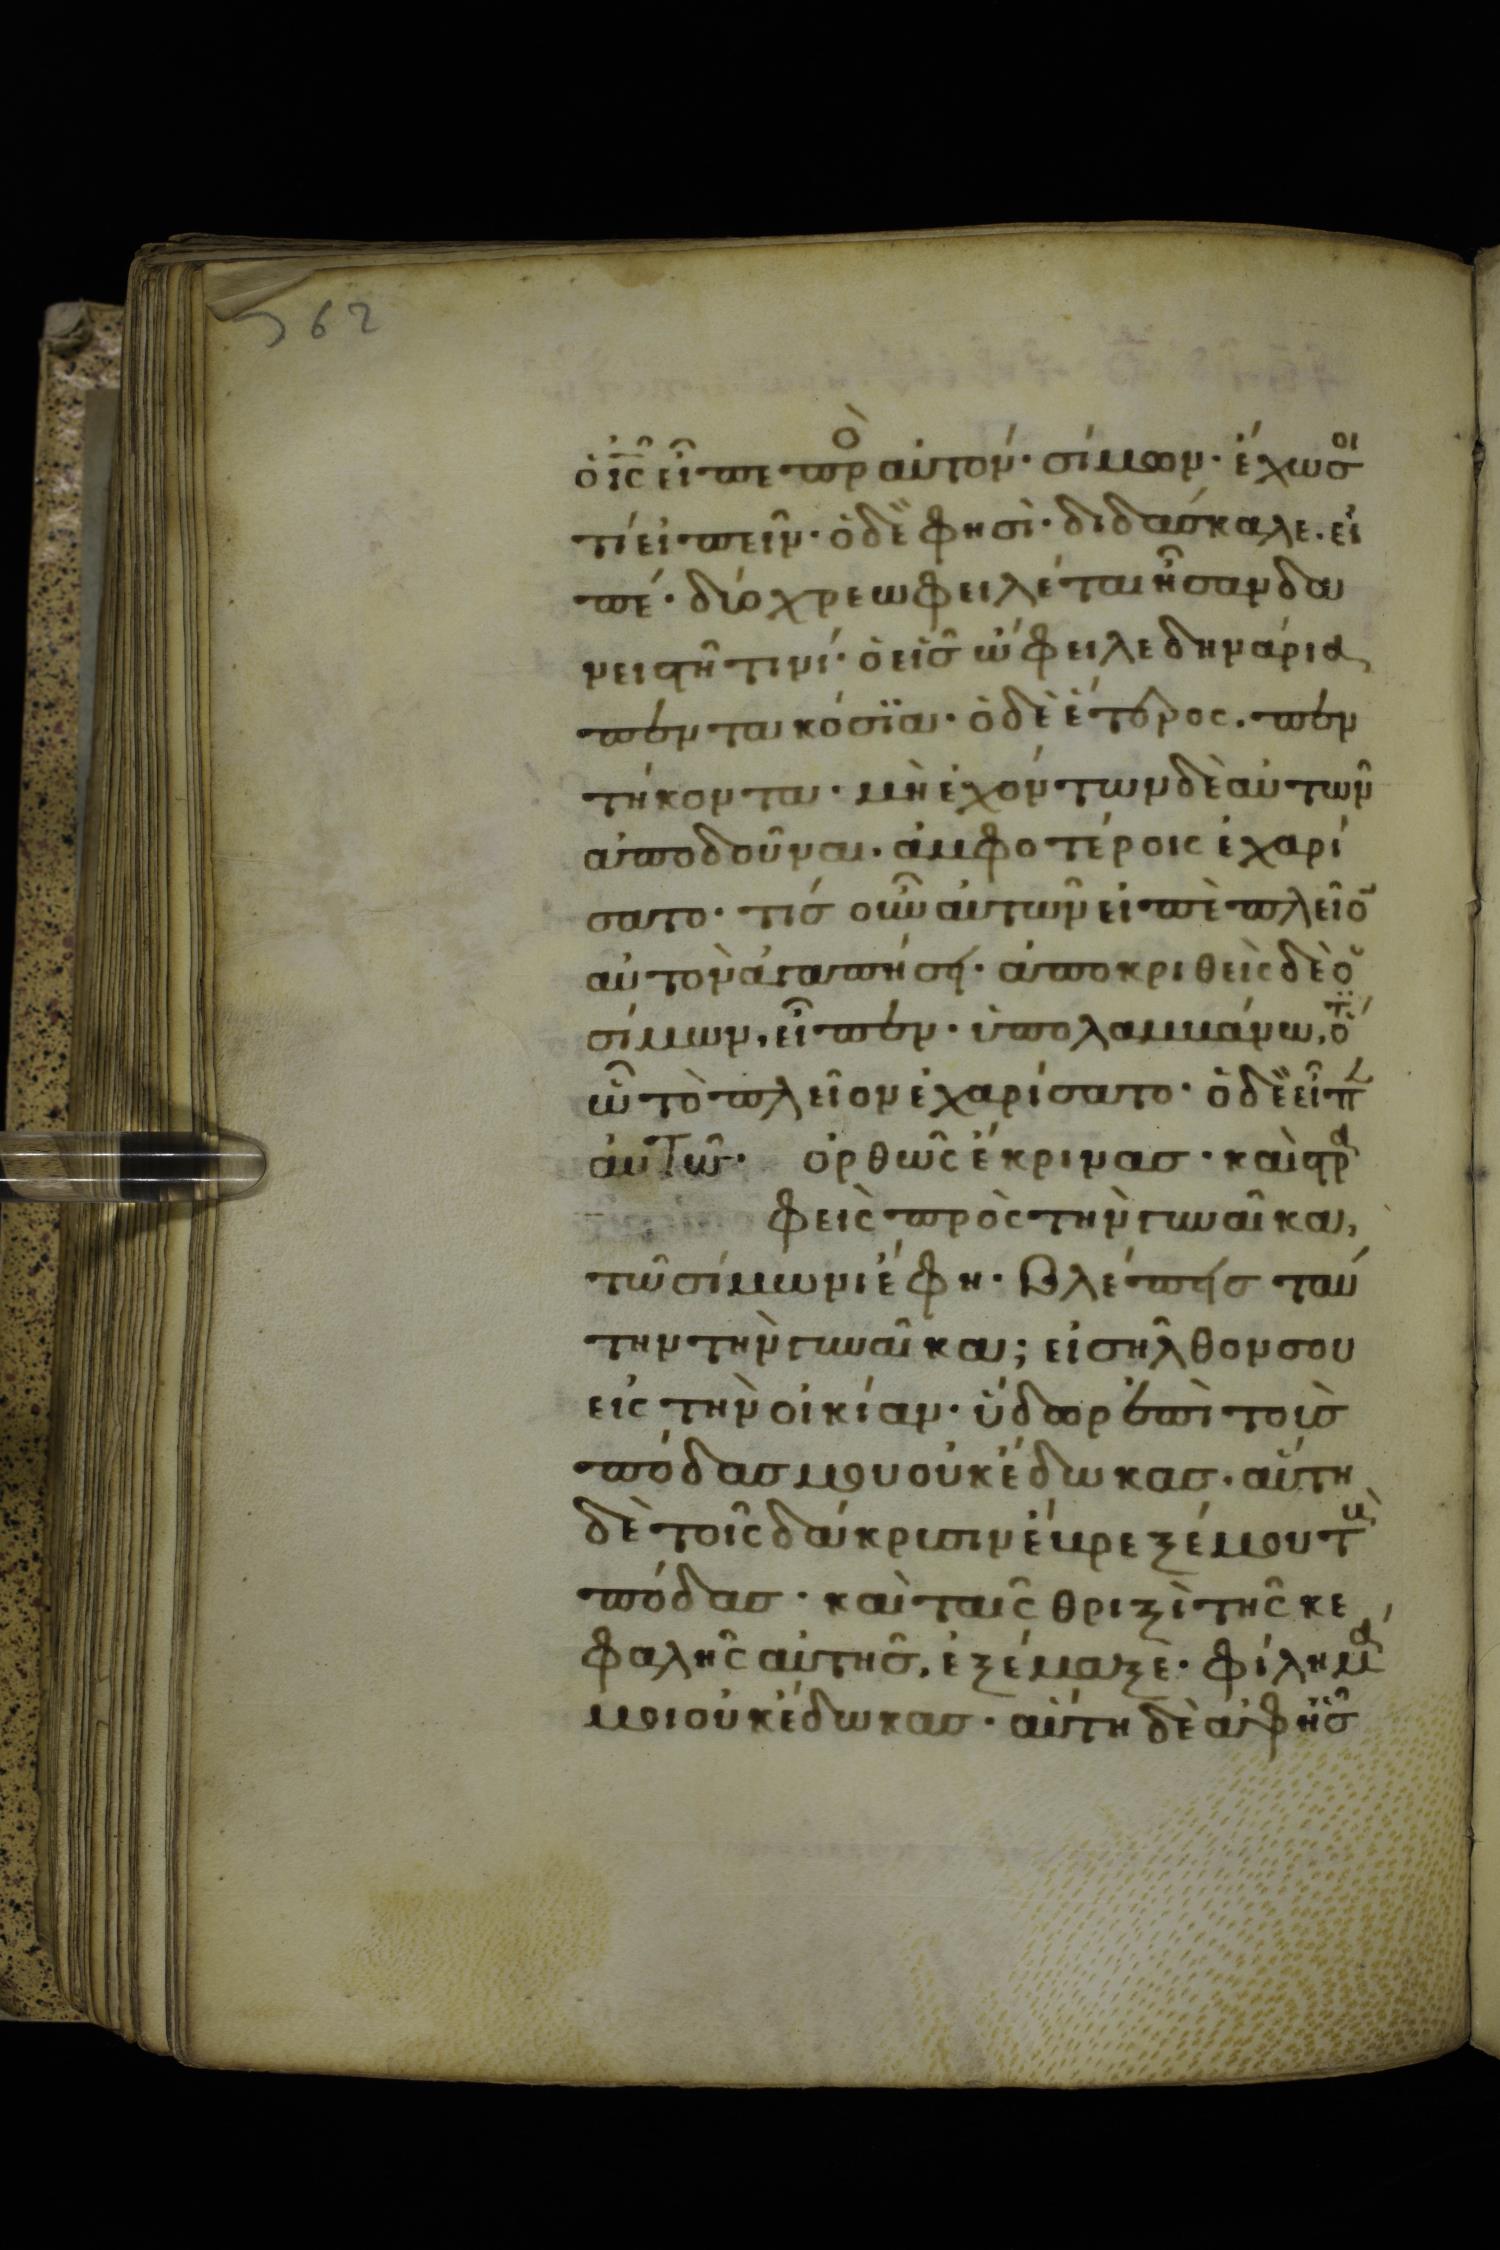 362
ὁ ἰς εἶπε πρὸ αὐτόν· σίμων· ἔχω σοι
τί εἰπεῖν· ὁ δὲ φησὶ· διδάσκαλε. εἰ
πέ· δύο χρεωφειλέται ἦσαν δα
νειστῆ τινί· ὁ εἷς ὤφειλε δηνάρια
πεντακόσϊα· ὁ δὲ ἕτερος. πεν
τήκοντα· μὴ ἐχόντων δὲ αὐτῶν
ἀποδοῦναι. ἀμφοτέροις ἐχαρί
σατο· τίς οὖν αὐτῶν εἰπὲ πλεῖο
αὐτὸν ἀγαπήσει· ἀποκριθεὶς δὲ ὁ
σίμων, εἶπεν· ὑπολαμμάνω, ὅτι
ὧ τὸ πλεῖον ἐχαρίσατο· ὁ δὲ εἶπ
αὐτῶ· ὀρθῶς ἔκρινας· καὶ στρα
φεὶς πρὸς τὴν γυναῖκα,
τῶ σίμωνι ἔφη· βλέπεις ταύ
την τὴν γυναῖκα; εἰσῆλθον σου
εἰς τὴν οἰκίαν· ὕδωρ ἐπὶ τοὺς
πόδας μου οὐκ ἔδωκας. αὕτη
δὲ τοῖς δάκρυσιν ἔβρεξέ μου τοὺς
πόδας· καὶ ταῖς θριξὶ τῆς κε
φαλῆς αὐτῆς, ἐξέμαξε· φίλημά
μοι οὐκ ἔδωκας· αὕτη δὲ ἀφ ἧς